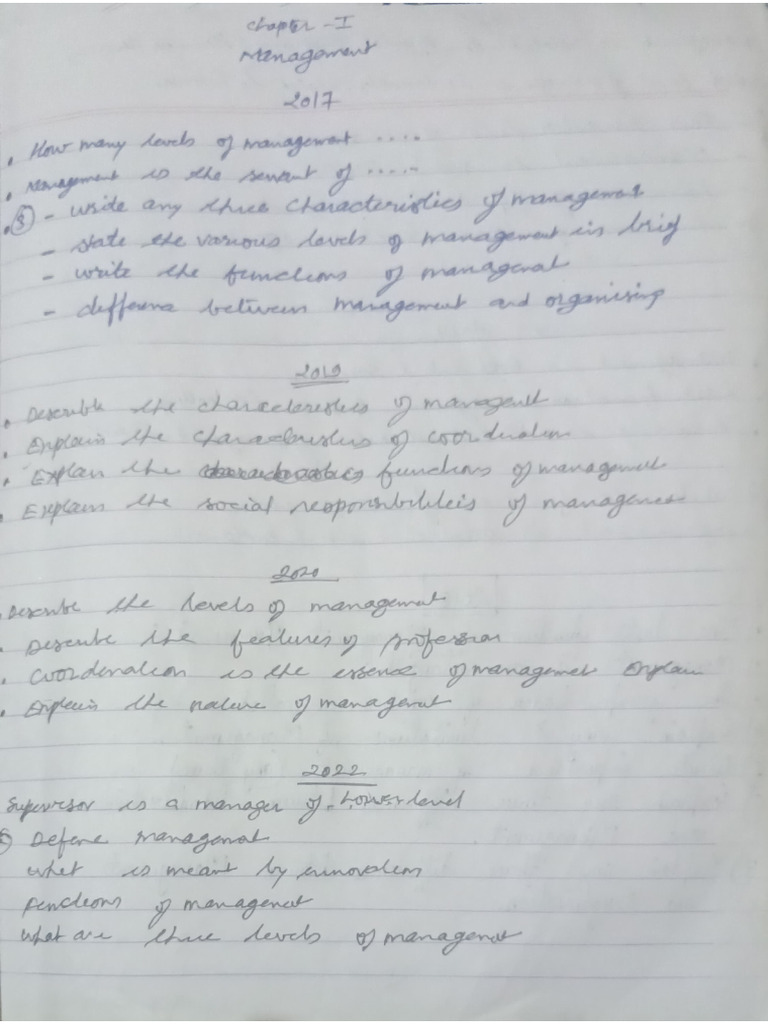 Chapter - I
Management
2017
. How many levels of management ....
. Management is the servant of .....
. ③ - write any three characteristics of management
- state the various levels of management in brief
- write the functions of management
- difference between management and organising
2019
. Describe the characteristics of management
. Explain the characteristics of coordination
. Explain the functions of management
. Explain the social responsibilities of management
2020
. Describe the levels of management
. Describe the features of profession
. Coordination is the essence of management Explain
. Explain the nature of management
2022
Supervisor is a manager of Lower level
Define management
what is meant by innovation
functions of management
what are three levels of management